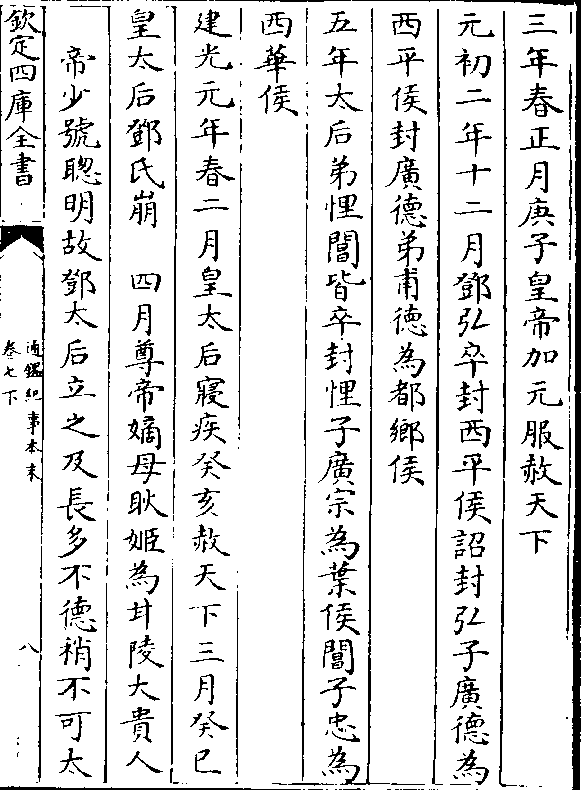 三年春正月庚子皇帝加元服赦天下
元初二年十二月鄧弘卒封西平侯詔封弘子廣德為
西平侯封廣德弟甫德為都鄉侯
五年太后弟悝閶皆卒封悝子廣宗為葉侯閶子忠為
西華侯
建光元年春二月皇太后寢疾癸亥赦天下三月癸巳
皇太后鄧氏崩　四月尊帝嫡母耿姬為甘陵大貴人
帝少號聰明故鄧太后立之及長多不德稍不可太
欽定四庫全書
通鑑紀事本末
卷七下
八